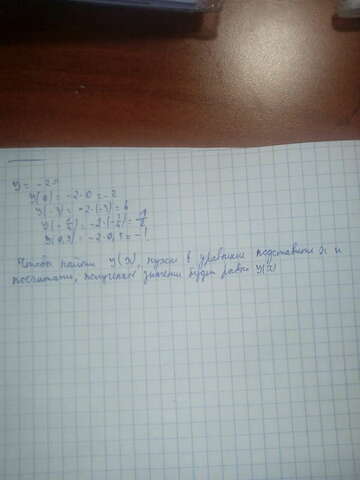 y = -2x
y(0) = -2·0 = -2
y(-3) = -2·(-3) = 6
y(-) = -2·(-) =
y(0,5) = -2·0,5 = -1
Чтобы найти y(x), нужно в уравнение подставить x и
посчитать, полученное значение будет равно y(x)